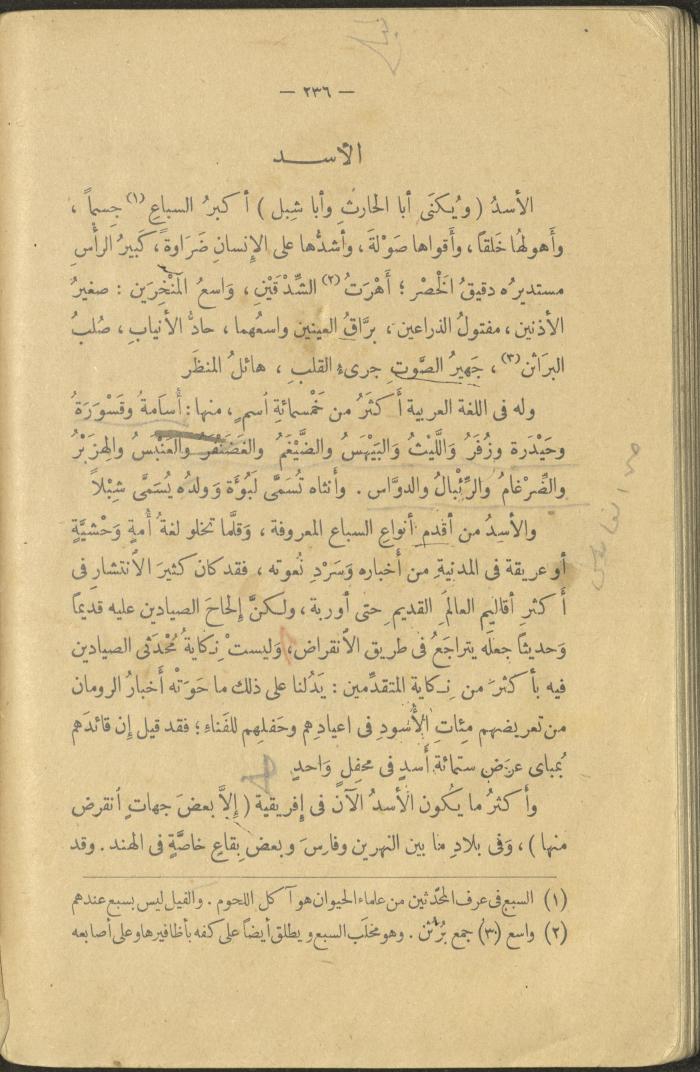 — ٢٣٦ —
الأسد
الأسدُ ( ويُكنَى أبا الحارثِ وأبا شِبل ) أكبرُ السباعِ (١) جِسماً ،
وأهولهُا خَلقاً ، وأقواها صَوْلةَ ، وأشدُّها على الإنسانِ ضَرَاوةً ، كَبيرُ الرأْسِ
مستديرُه دقيقُ الخَصْر ؛ أَهْرَتُ (٢) الشِّدْقَيْنِ ، وَاسعُ المَنْخِرَين : صغيرُ
الأذنين ، مفتولُ الذراعين ، برَّاقُ العينين واسعُهما ، حادُّ الأنيابِ ، صُلبُ
البرَاثن (٣) ، جَهيرُ الصَّوتِ جرىءُ القلبِ ، هائلُ المنظَر
وله فى اللغة العربية أكثَرُ من خَمْسمائةِ اُسمٍ ، منها : أُسَامةُ وقَسْورَةُ
وحَيْدَرة وزُفَرُ وَاللَّيْثُ وَالبَيْهَسُ والضَّيْغَمُ والغَضَنْفَرُ والعَنْبَسُ والهِزَبْرُ
والضِّرْغامُ والرِّئْبالُ والدوَّاس . وأنثاه تُسَمَّى لَبُوَّةَ وَولدُه يُسَمَّى شِبْلاً
والأسدُ من أقدم أنواع السباع المعروفة ، وَقلَّما تخلو لغةُ أمةٍ وَحْشيَّةٍ
أو عريقة فى المدنيةِ من أخباره وَسَرْدِ نُعوته ، فقد كان كثيرَ الاُنتشارِ فى
أكثرِ أقاليم العالَمِ القديم ِ حتى أوربة ، ولكنَّ إلحاحَ الصيادين عليه قديماً
وَحديثاً جعلَه يتراجَعُ فى طريق الاُنقراض ، وَليستْ نِكايةُ مُحْدَثى الصيادين
فيه بأكثرَ من نِكاية المتقدِّمين : يَدُلنا على ذلك ما حَوَتْه أخبارُ الرومان
من تعريضهم مِئاتِ الأُسودِ فى اعيادِهم وحَفلِهم للفَناءِ ؛ فقد قيل إن قائدَهم
بُمباى عرَض ستمائة أسدٍ فى محفِلٍ وَاحدٍ
وأكثرُ ما يكُون الأسدُ الآنَ فى إفريقية ( إلاَّ بعضَ جهاتٍ اُنقرض
منها ) ، وَفى بلادِ ما بين النهرين وفارسَ وبعضِ بِقاعٍ خاصَّةٍ فى الهند . وقد
(١) السبع فى عرف المحدّثين من علماء الحيوان هو آكل اللحوم . والفيل ليس بسبع عندهم
(٢) واسع (٣) جمع بُرْثن . وهو مخلَب السبع ويطلق أيضاً على كفه بأظافيرها وعلى أصابعه